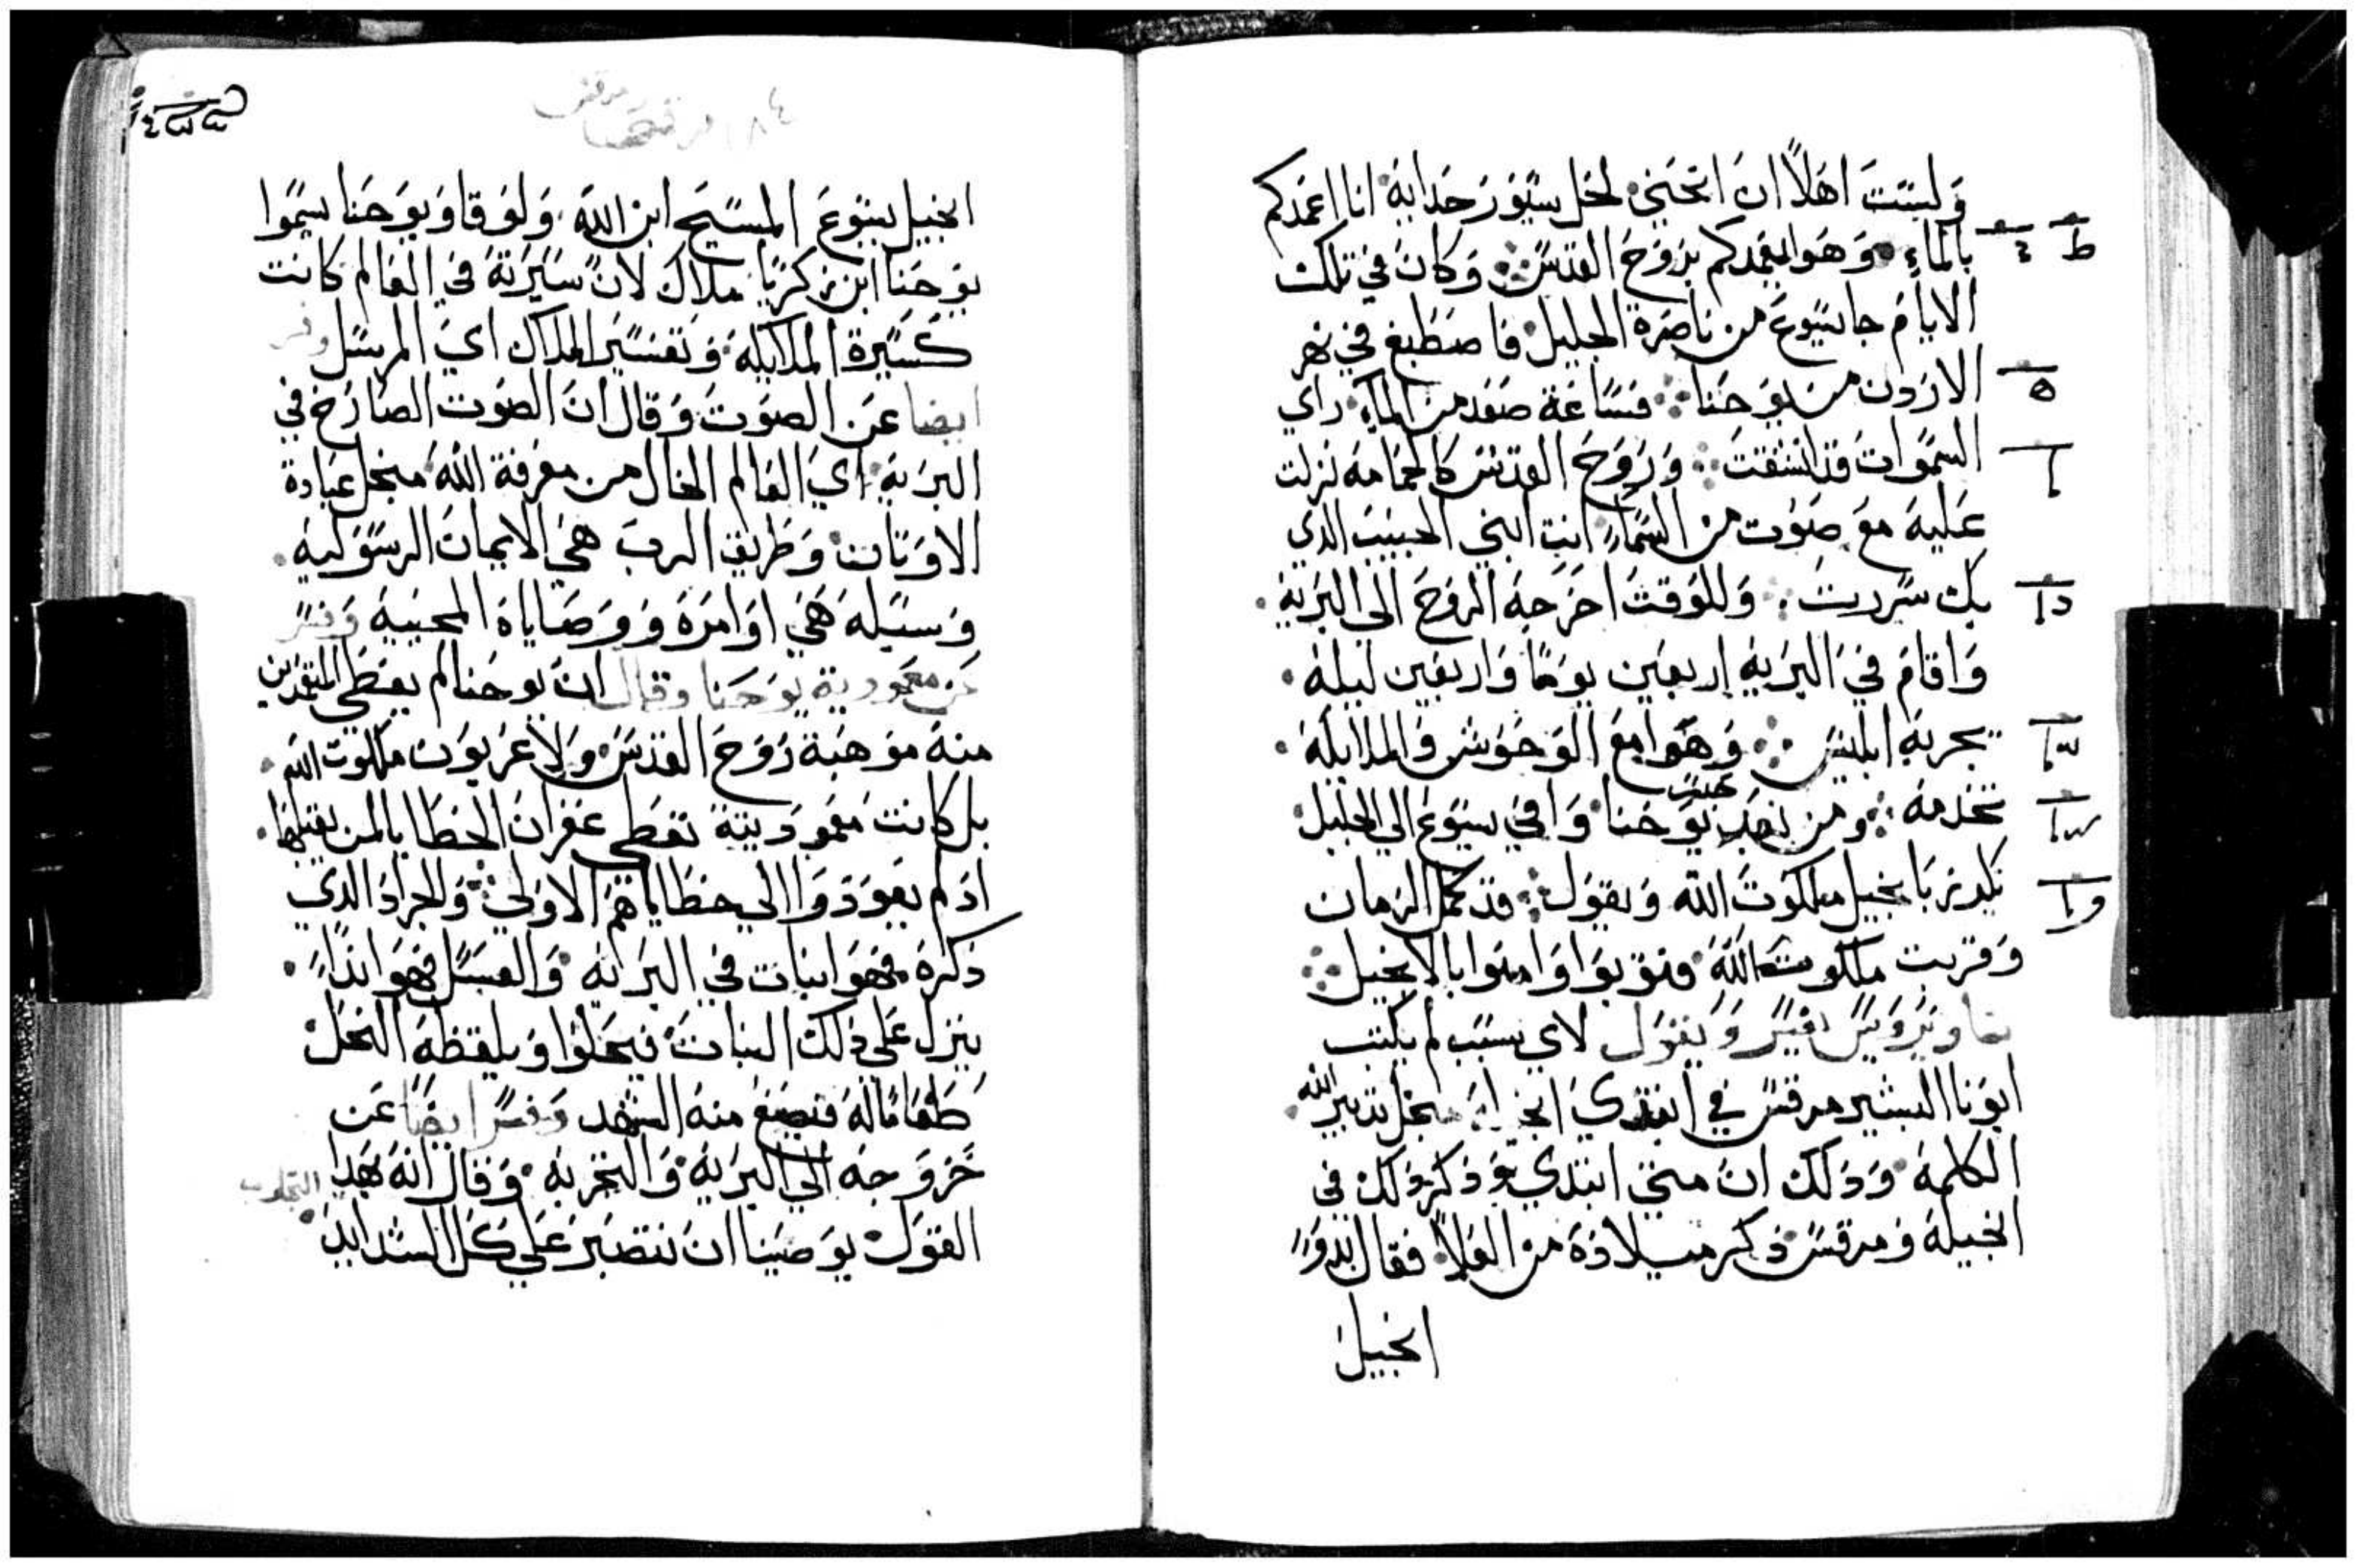 وليست اهلاً ان انحني لحل سيور حدايه انا اعمدكم
بالماء وهوا يعمدكم بروح القدس وكان في تلك
الايام جا يسوع من ناصرة الجليل فاصطبغ في نهر
الاردن من يوحنا فساعة صعد من الماء راي
السموات قد انشقت وروح القدس كالحمامه نزلت
عليه مع صوت من السماء انت ابني الحبيب الدي
بك سررت وللوقت اخرجه الروح الي البريه
واقام في البريه اربعين يوما واربعين ليله
يجربه ابليس وهوا مع الوحوش والملايكه
تخدمه ومن بعد حبس يوحنا وافي يسوع الي الجليل
يكرز بانجيل ملكوت الله ويقول قد كمل الزمان
وقربت ملكوت الله فتوبوا وامنوا بالانجيل
يفسر ويقول لاي سبب لم يكتب
ابونا البشير مرقس في ابتدي انجيله منجل تدبير الله
الكلمه ودلك ان متي ابتدي ودكر دلك في
انجيله ومرقس دكر ميلاده من العلا فقال بدو
انجيل
مرقس
انجيل يسوع المسيح ابن الله ولوقا ويوحنا سموا
يوحنا ابن زكريا ملاك لان سيرته في العالم كانت
كسيرة الملايكه وتفسير الملاك اي المرسل
ايضا عن الصوت وقال ان الصوت الصارخ في
البريه اي العالم الخال من معرفة الله منجل عبادة
الاوتان وطريق الرب هي الايمان الرسوليه
وسبله هي اوامره ووصاياه المحييه وفسر
عن معمودية يوحنا وقال ان يوحنا لم يعطي المتعمدين
منه موهبة روح القدس ولا عربون ملكوت الله
بل كانت معموديته تعطي غفران الخطايا لمن يقبلها
ادم يعودوا الي خطاياهم الاولي والجراد الدي
دكره فهوا نبات في البريه والعسل فهو اندا
ينزل علي دلك النبات فيحلوا ويلقطه النحل
طعاما له فيصنع منه الشهد وفسر ايضا عن
خروجه الي البريه والتجربه وقال انه بهدا
القول يوصينا ان نتصبر علي كل الشدايد
التجارب